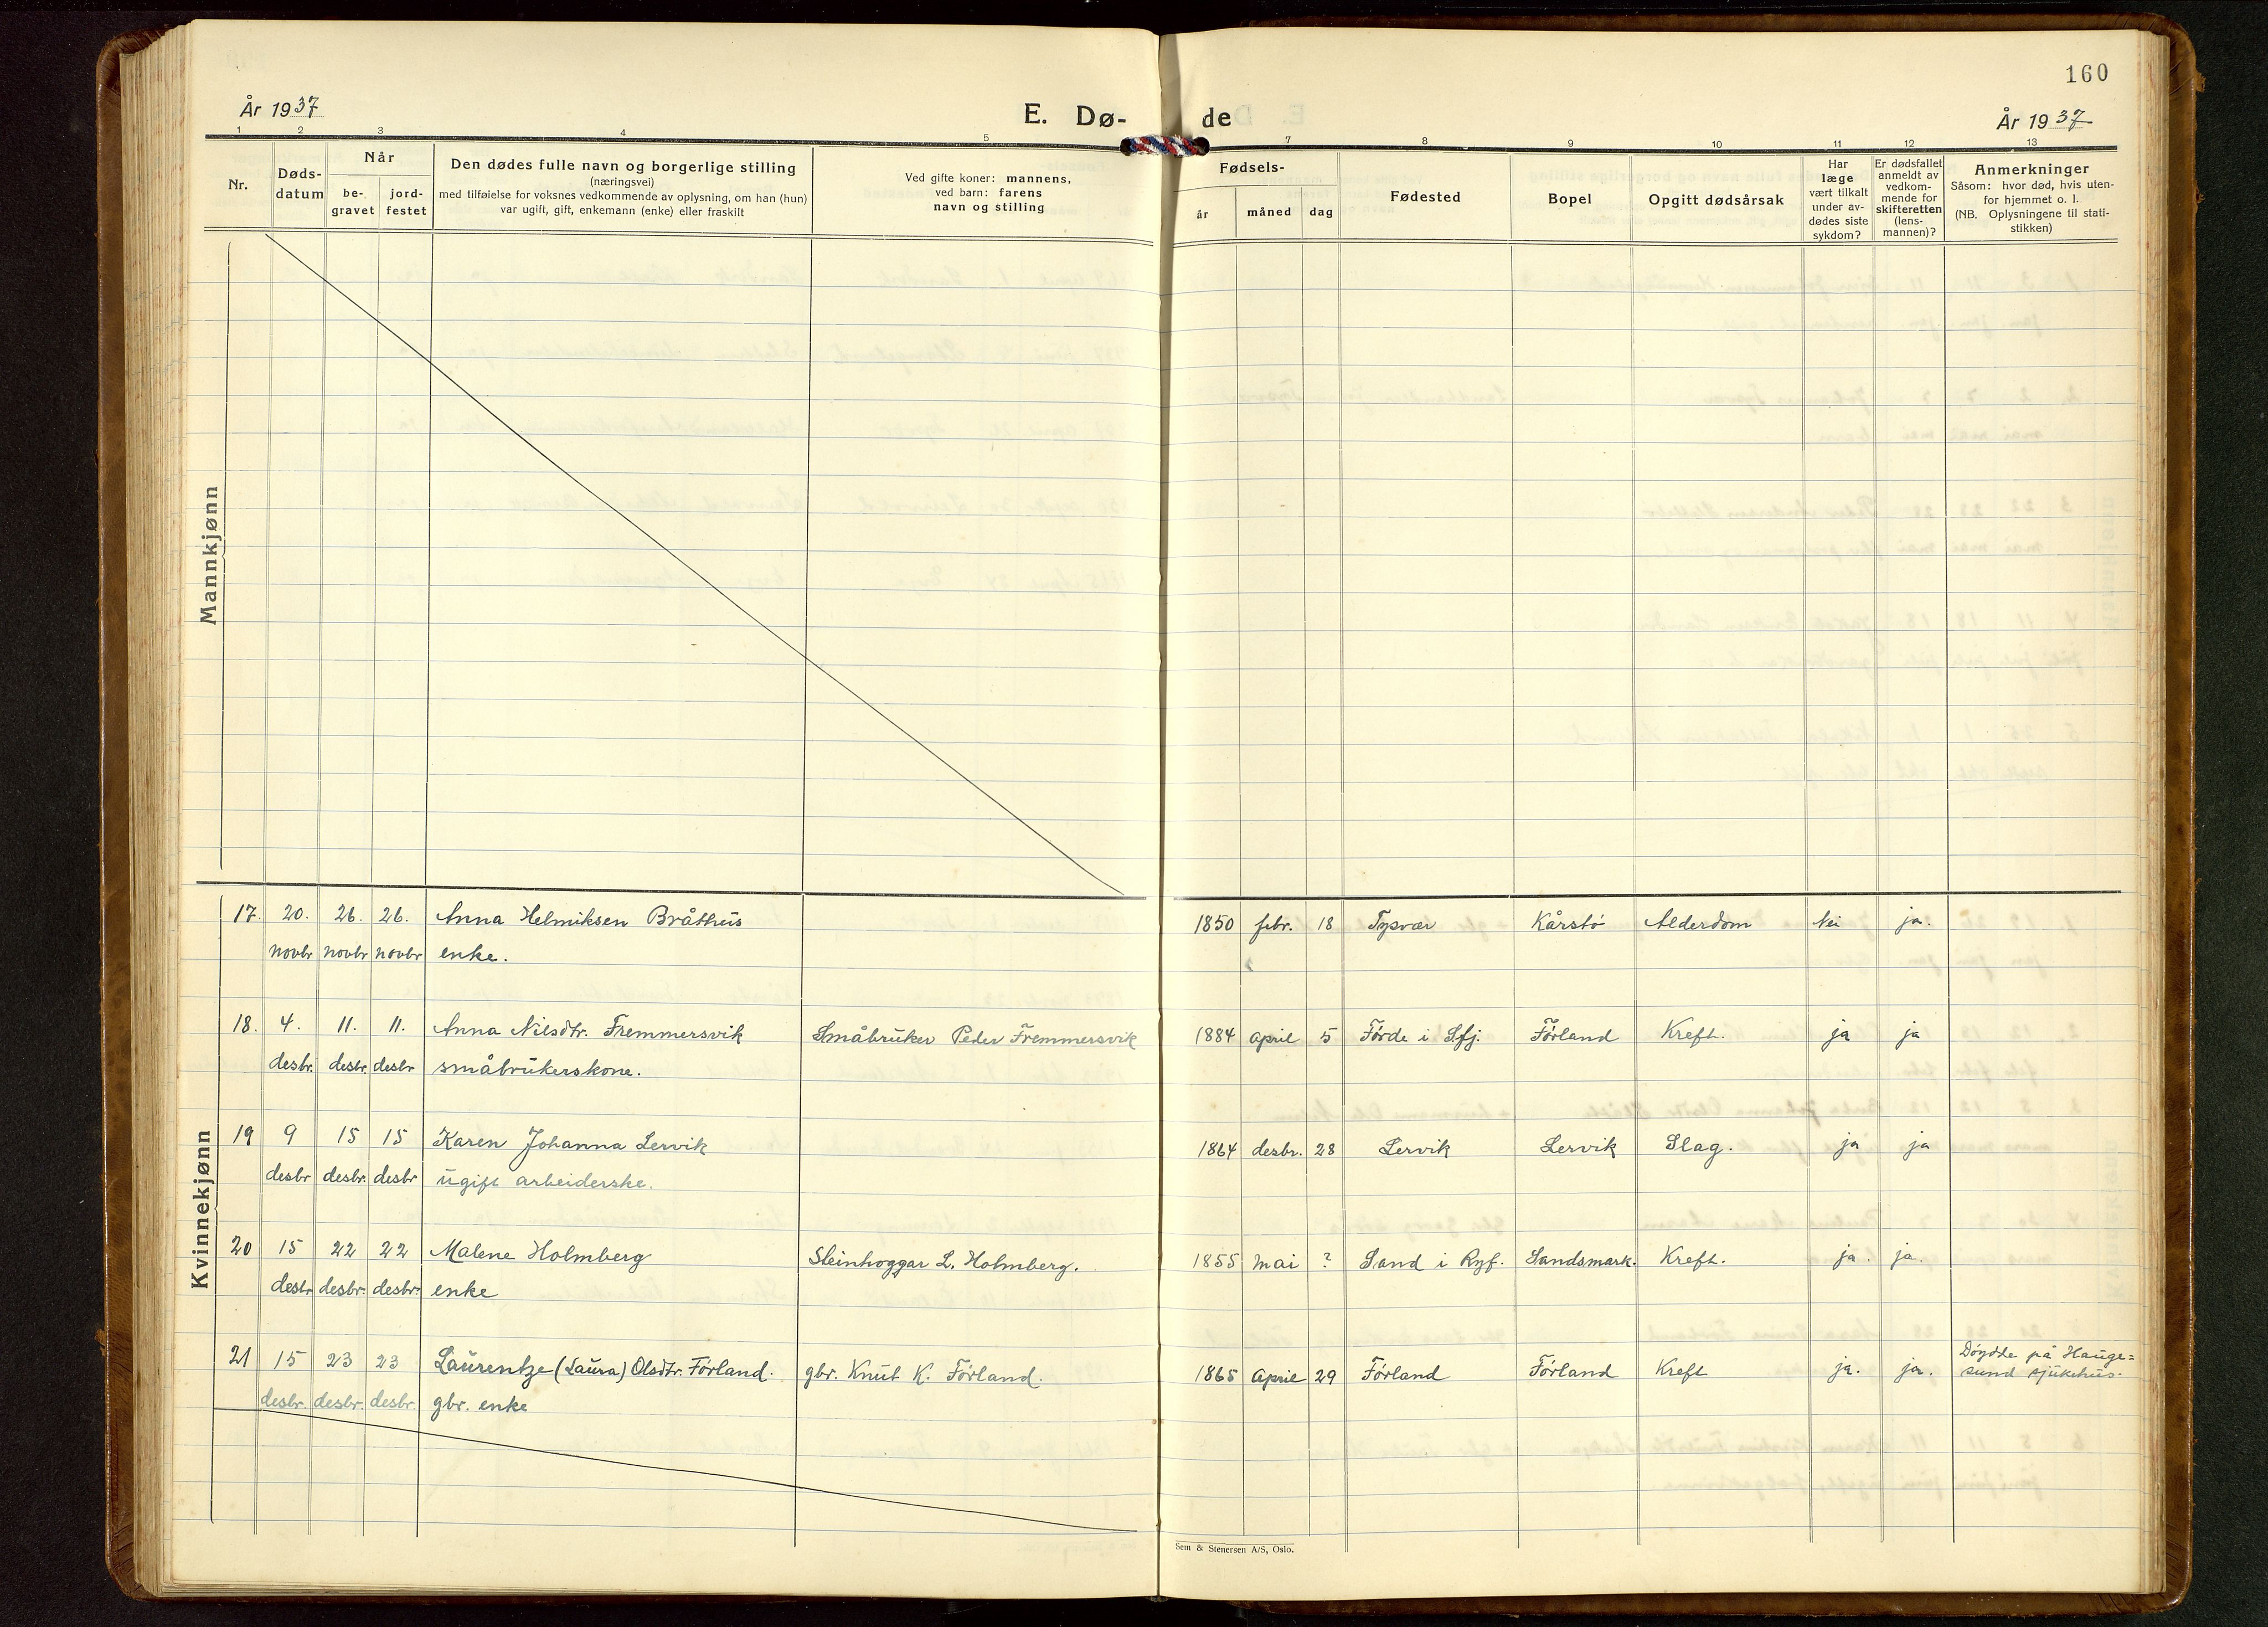 160
År 1937
E. Dø-
de
År 1937
1 2 3 4 5 7 8 9 10 11 12 13
Nr.
Døds-
datum
Når
be-
gravet
jord-
festet
Den dødes fulle navn og borgerlige stilling
(næringsvei)
med tilføielse for voksnes vedkommende av oplysning, om han (hun)
var ugift, gift, enkemann (enke) eller fraskilt
Ved gifte koner: mannens,
ved barn: farens
navn og stilling
Fødsels-
år
måned
dag
Fødested
Bopel
Opgitt dødsårsak
Har
læge
vært tilkalt
under av-
dødes siste
sykdom?
Er dødsfallet
anmeldt av
vedkom-
mende for
skifteretten
(lens-
mannen)?
Anmerkninger
Såsom: hvor død, hvis uten-
for hjemmet o. l.
(NB. Oplysningene til stati-
stikken)
Mannkjønn
Kvinnekjønn
17. 20. 26. 26. Anna Helmiksen Bråthus 1850 febr. 18 Tysvær Kårstø Alderdom Nei ja.
novbr novbr novbr enke.
18. 4. 11. 11. Anna Nilsdtr. Fremmersvik Småbruker Peder Fremmersvik 1884 april 5 Førde i Sfj. Førland Kreft. ja ja
desbr. desbr. desbr småbrukerskone.
19 9 15 15 Karen Johanna Lervik 1864 desbr. 28 Lervik Lervik Slag. ja ja
desbr desbr. desbr ugift arbeiderske.
20 15 22 22 Malene Holmberg Steinhoggar L. Holmberg. 1855 mai ? Sand i Ryf. Sandsmark. Kreft. ja. ja.
desbr desbr. desbr. enke
21 15 23 23 Laurentze (Laura) Olsdtr. Førland. gbr. Knut K. Førland. 1865 April 29 Førland Førland Kreft ja. ja. Døydde på Hauge=
sund sjukehus.
desbr. desbr. desbr. gbr. enke
Sem & Stenersen A/S, Oslo.